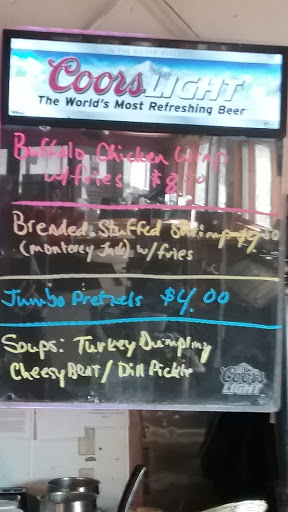 Coors LIGHT
The World's Most Refreshing Beer
Buffalo Chicken Wrap
w/fries $8.50
Breaded Stuffed Shrimp $9.50
(Monterey Jack) w/fries
Jumbo Pretzels $4.00
Soups: Turkey Dumpling
Cheesy BEAT/Dill Pickle
Coors
LIGHT